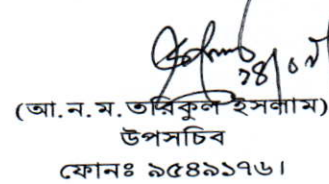 (আ.ন.ম. তরিকুল ইসলাম)
উপসচিব
ফোনঃ ৯৫৪৯১৭৬।